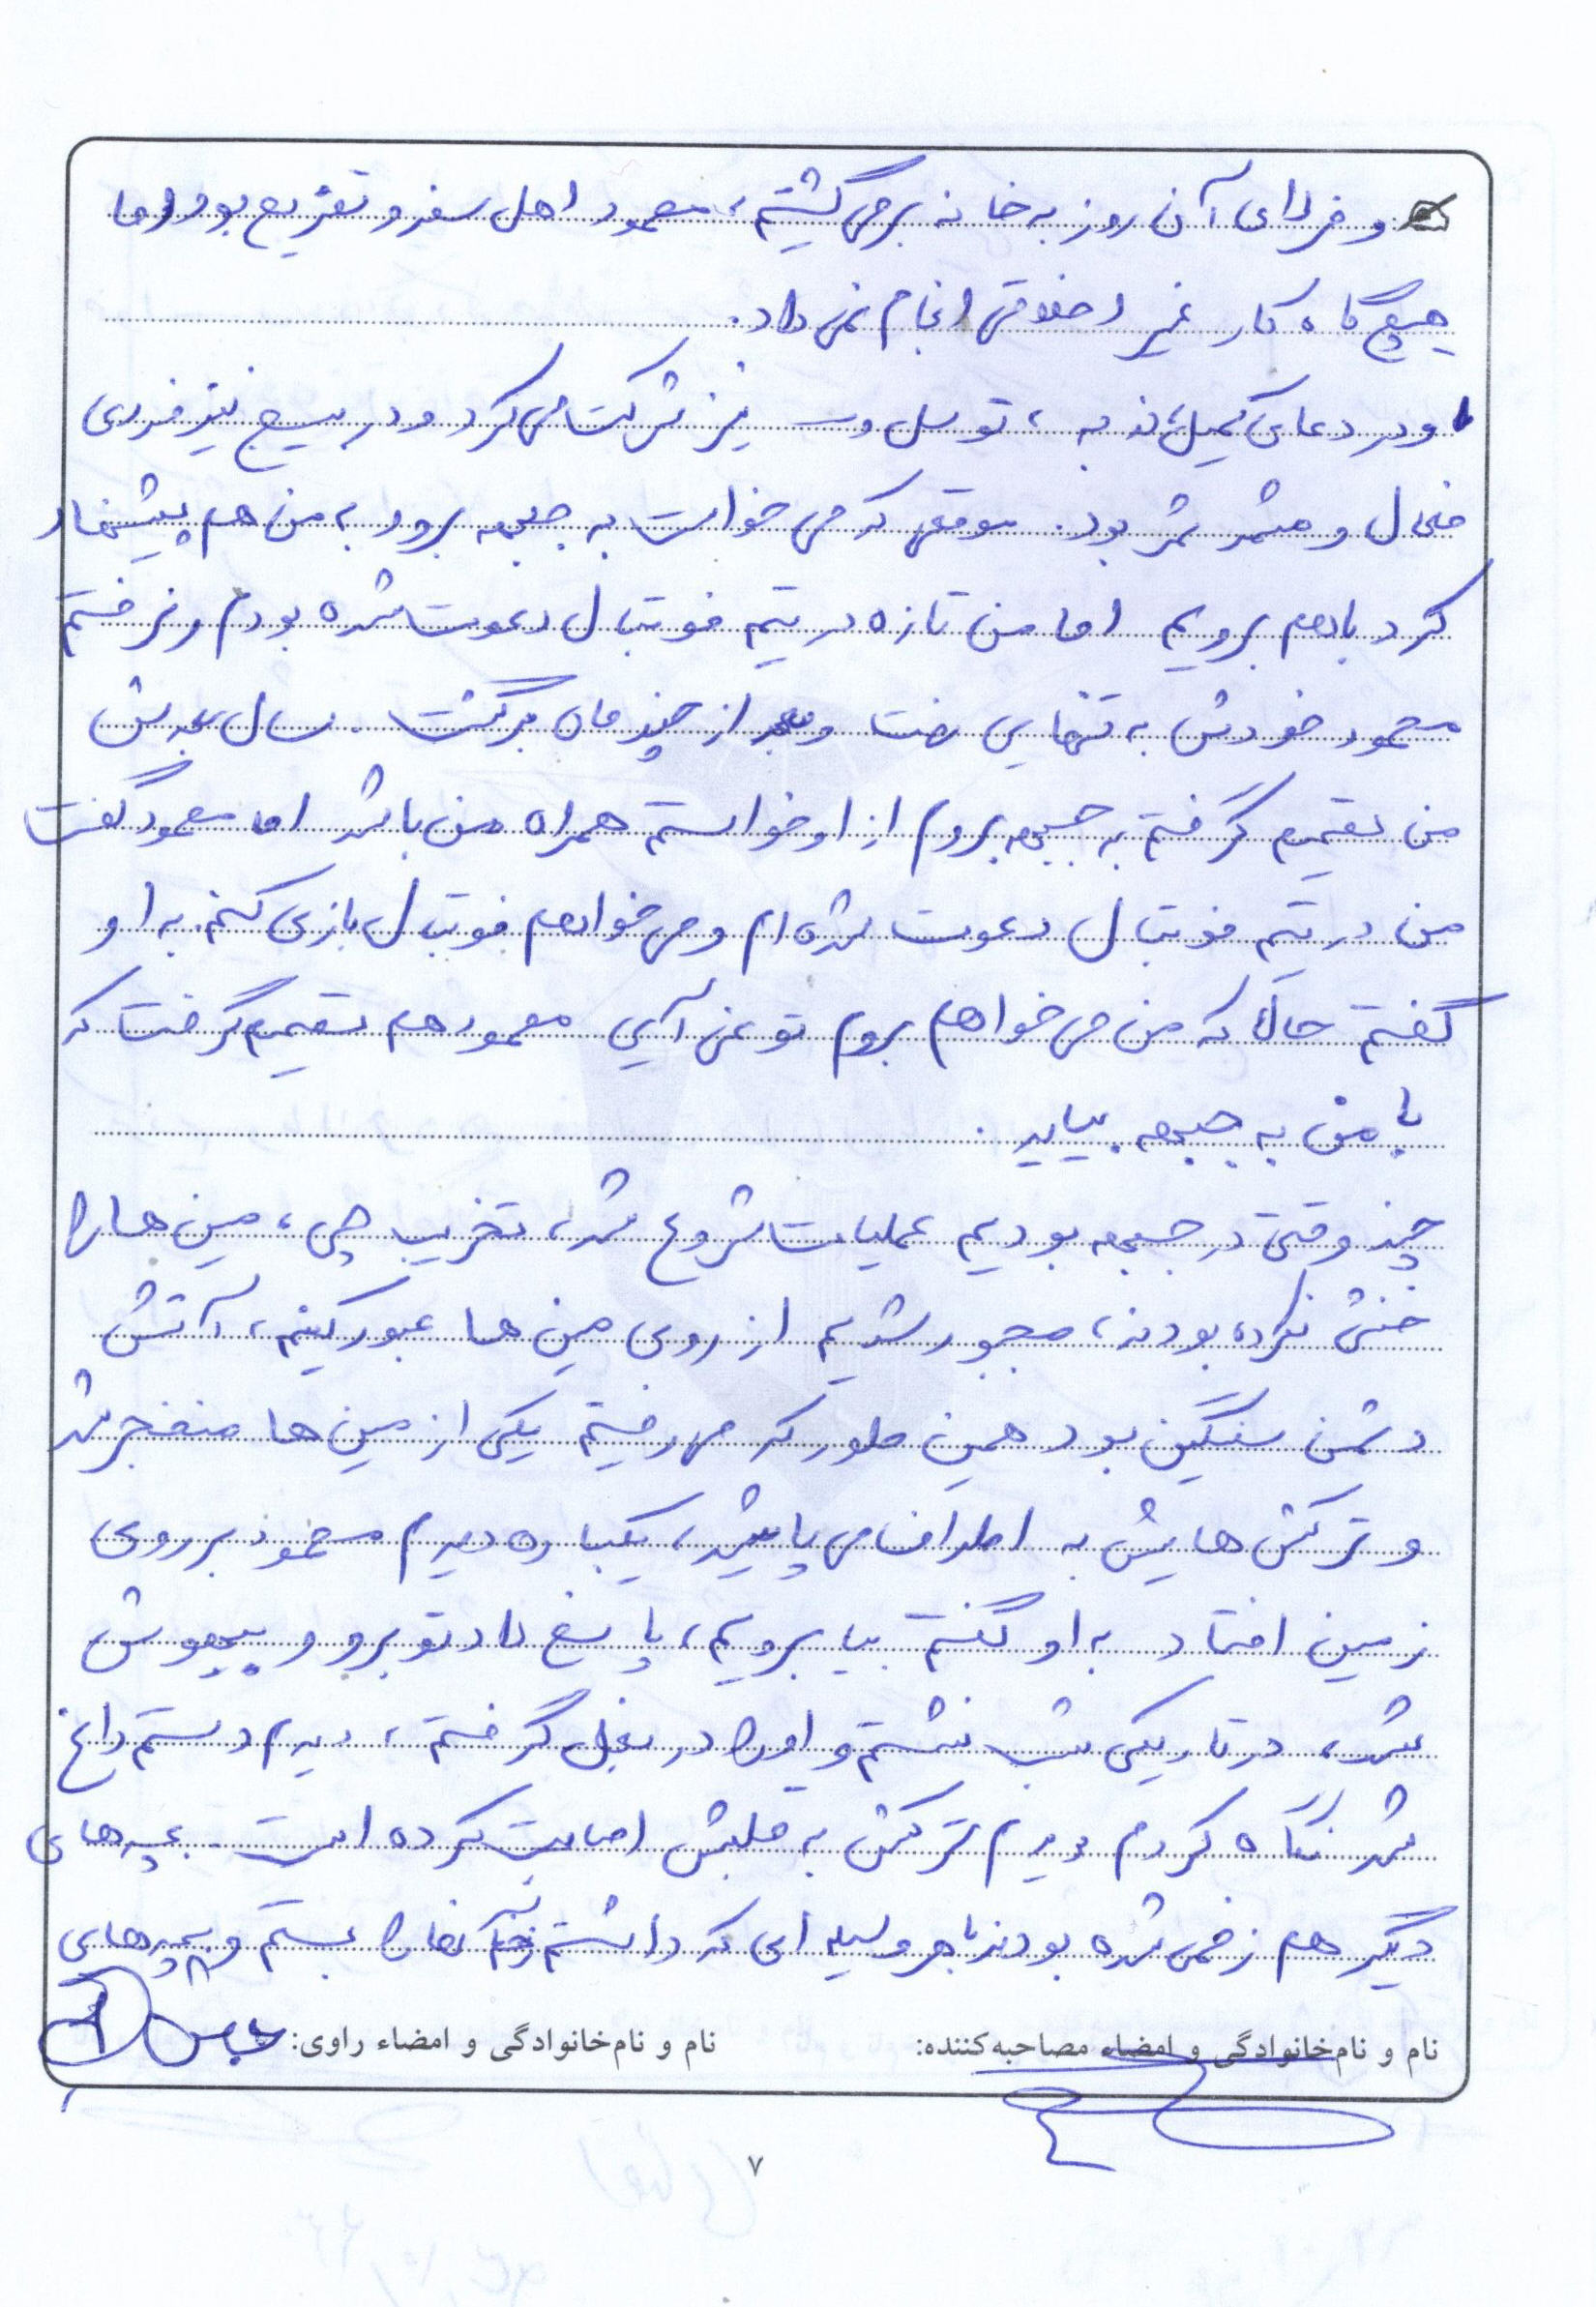 و فردای آن روز به خانه برمی‌گشتیم، محمود اهل سفر و تفریح بود اما
هیچ گاه کار غیر اخلاقی انجام نمی داد.
و در دعای کمیل، ندبه، توسل و نیز شرکت می کرد و در بسیج نیز فردی
فعال و مثمر ثمر بود. موقعی که می خواست به جبهه برود به من هم پیشنهاد
کرد باهم برویم اما من تازه در تیم فوتبال دعوت شده بودم و نرفتم
محمود خودش به تنهایی رفت و بعد از چند ماه برگشت. سال بعدش
من تصمیم گرفتم به جبهه بروم از او خواستم همراه من باشد اما محمود گفت
من در تیم فوتبال دعوت شده ام و می خواهم فوتبال بازی کنم. به او
گفتم حالا که من می خواهم بروم تو نمی آیی محمود هم تصمیم گرفت که
با من به جبهه بیاید.
چند وقتی در جبهه بودیم عملیات شروع شد، تخریب چی، مین ها را
خنثی نکرده بودند، مجبور شدیم از روی مین ها عبور کنیم، آتش
دشمن سنگین بود همین طور که می رفتیم یکی از مین ها منفجر شد
و ترکش هایش به اطراف می پاشید، یکباره دیدم محمود بر روی
زمین افتاد به او گفتم بیا برویم، پاسخ داد تو برو و بیهوش
شد، در تاریکی شب نشستم و او را در بغل گرفتم، دیدم دستم داغ
شد نگاه کردم دیدم ترکش به قلبش اصابت کرده است. بچه های
دیگر هم زخمی شده بودند با هر وسیله ای که داشتم زخم آنها را بستم و بچه های
نام و نام‌خانوادگی و امضاء مصاحبه‌کننده:
نام و نام‌خانوادگی و امضاء راوی: عباس
۷